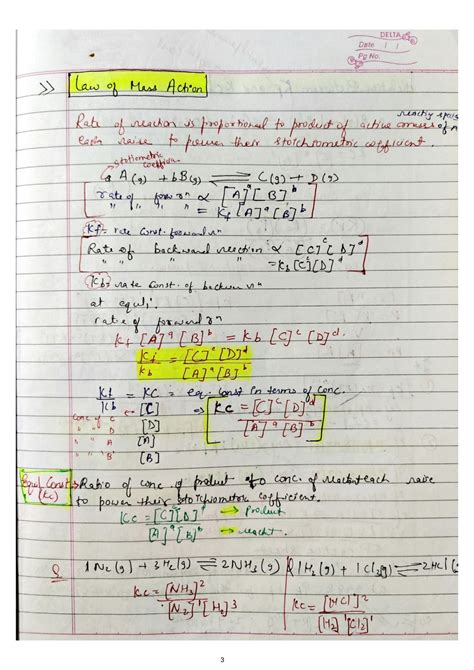 DELTA
Date / /
Pg No.
>> Law of Mass Action
Rate of reaction is proportional to product of active masses of
each raise to power their stoichiometric coefficient
stoichiometric
coefficient
aA(g) + bB(g) ⇌ C(g) + D(g)
rate of forw rⁿ ∝ [A]ᵃ[B]ᵇ
" " " " = Kf[A]ᵃ[B]ᵇ
Kf = rate const. forward rⁿ
Rate of backward reaction ∝ [C]ᶜ[D]ᵈ
" " " " = Kb[C]ᶜ[D]ᵈ
Kb = rate const. of backwar rⁿ
at equli.
rate of forward rⁿ
Kf[A]ᵃ[B]ᵇ = Kb[C]ᶜ[D]ᵈ
Kf/Kb = [C]ᶜ[D]ᵈ/[A]ᵃ[B]ᵇ
Kf/Kb = KC = eq. const In terms of conc.
conc of C ← [C] ⇒ Kc = [C]ᶜ[D]ᵈ/[A]ᵃ[B]ᵇ
" " D [D]
" " A [A]
" " B [B]
Equil. Const (Kc) → Ratio of conc. of product to conc. of each raise
to power their stoichiometric coefficient.
KC = [C]ᶜ[D]ᵈ → Product
[A]ᵃ[B]ᵇ → react.
Q 1N₂(g) + 3H₂(g) ⇌ 2NH₃(g)
KC = [NH₃]²/[N₂]¹[H₂]³
Q 1H₂(g) + 1Cl₂(g) ⇌ 2HCl(g)
KC = [HCl]²/[H₂]¹[Cl₂]¹
3